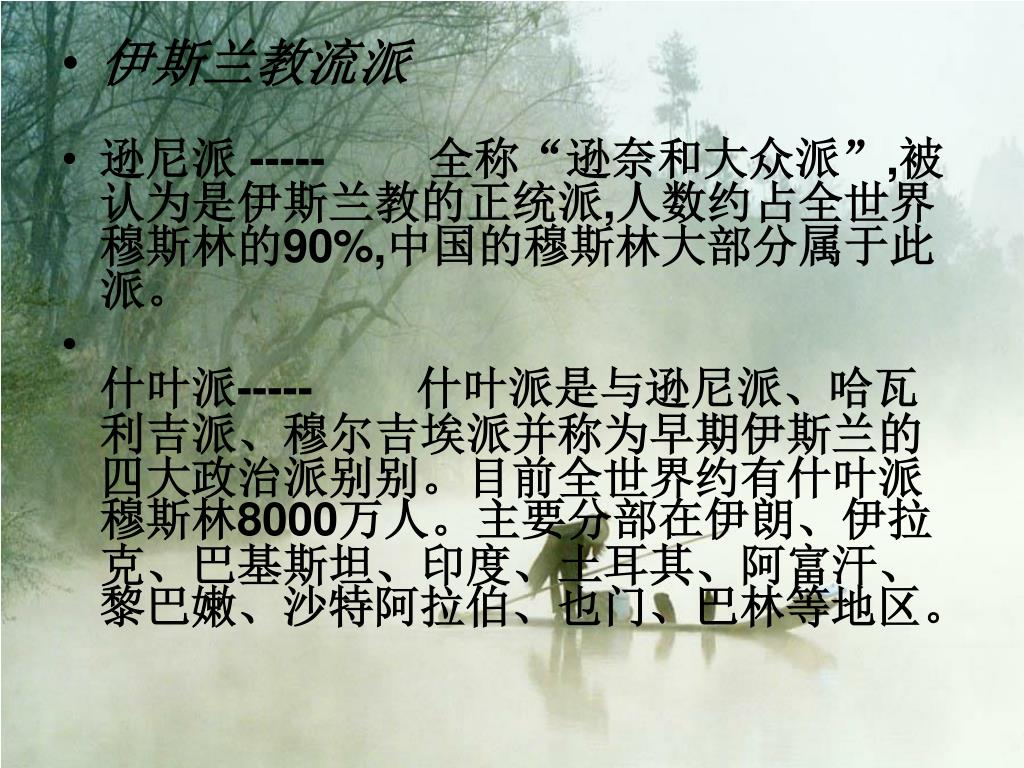 • 伊斯兰教流派
• 逊尼派 ----- 全称“逊奈和大众派”,被
认为是伊斯兰教的正统派,人数约占全世界
穆斯林的90%,中国的穆斯林大部分属于此
派。
•
什叶派----- 什叶派是与逊尼派、哈瓦
利吉派、穆尔吉埃派并称为早期伊斯兰的
四大政治派别别。目前全世界约有什叶派
穆斯林8000万人。主要分部在伊朗、伊拉
克、巴基斯坦、印度、土耳其、阿富汗、
黎巴嫩、沙特阿拉伯、也门、巴林等地区。